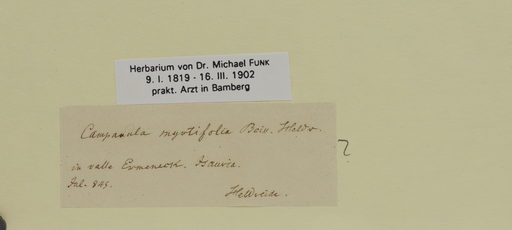 Herbarium von Dr. Michael FUNK
9. I. 1819 - 16. III. 1902
prakt. Arzt in Bamberg
Campanula myrtifolia Boiss. Heldr.
in valle Ermeneck. Isauria.
Jul. 845.
Heldreich.